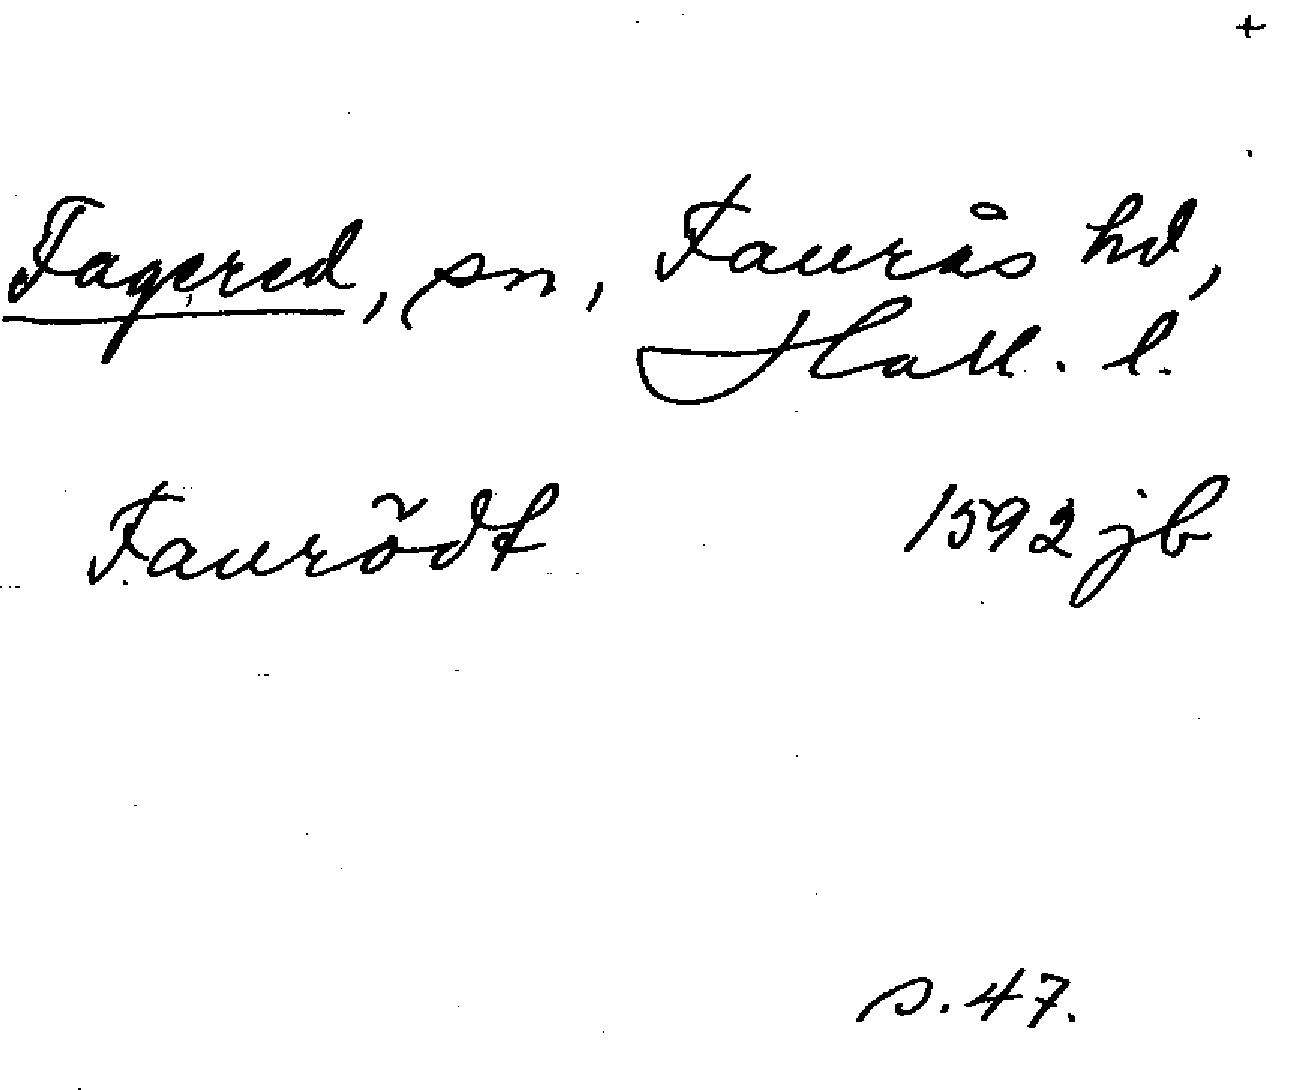 +
Fagered, sn, Faurås hd,
Hall. l.
Faurödt 1592 jb
s. 47.